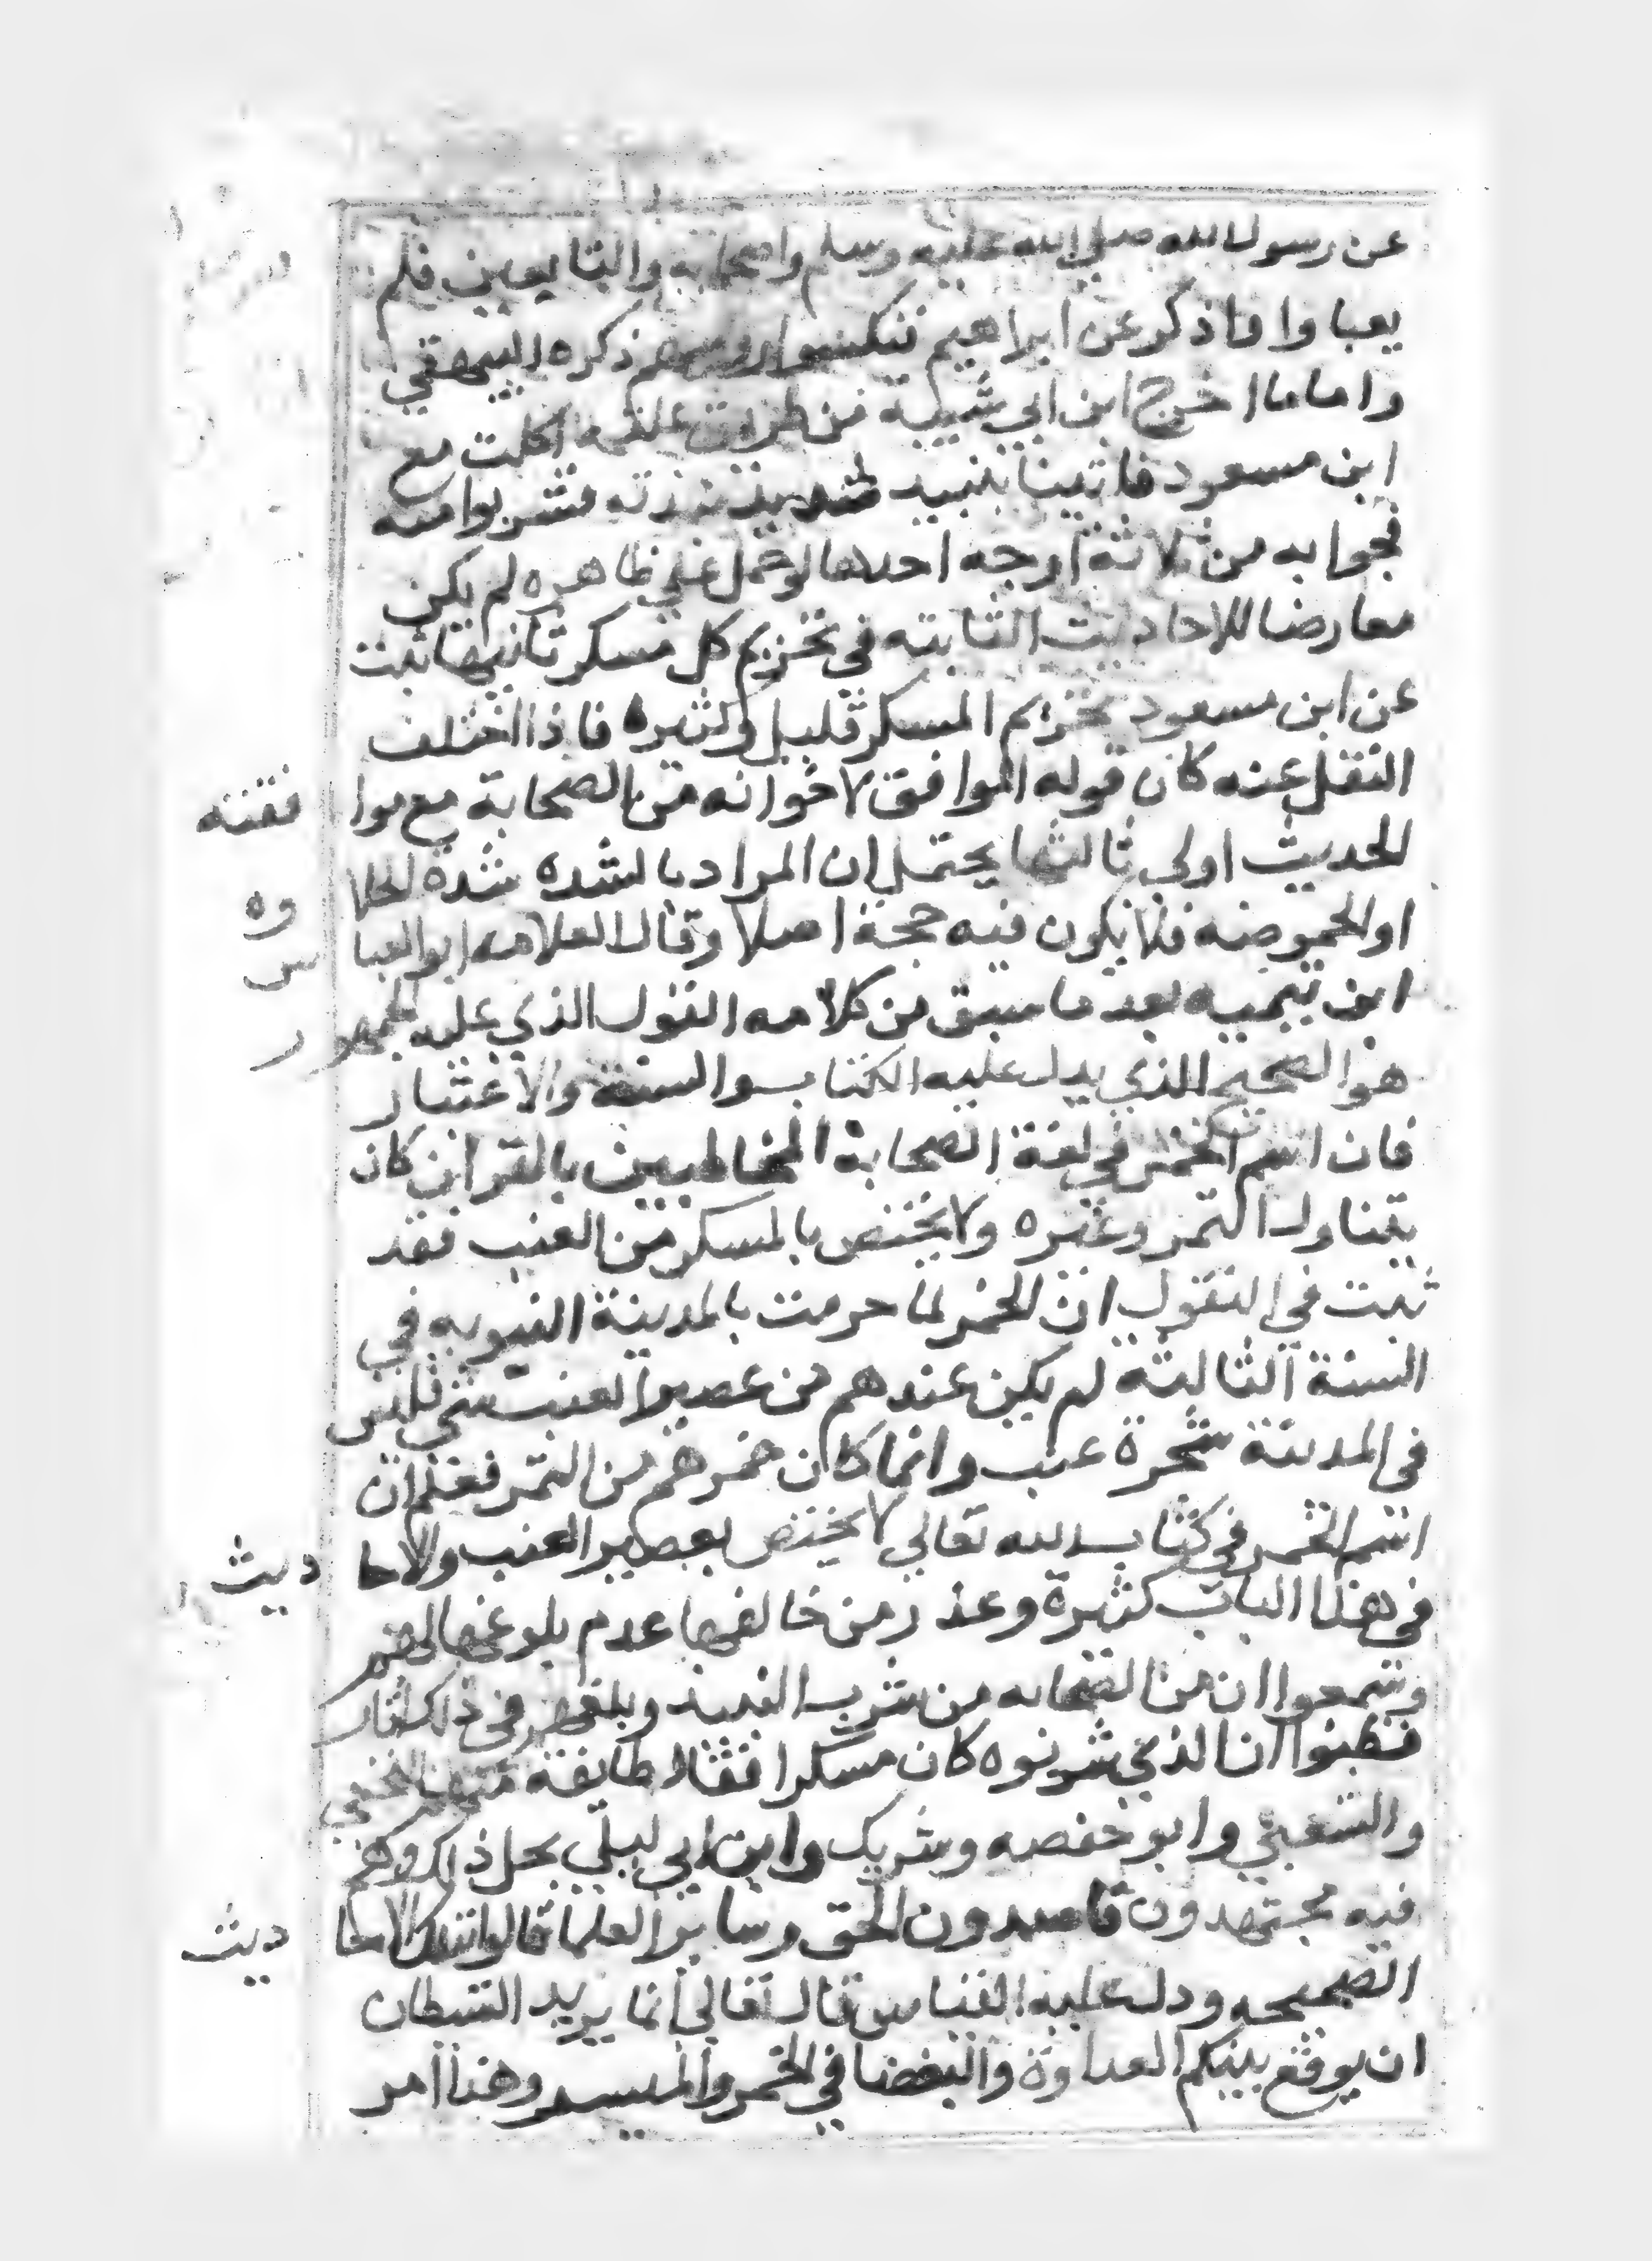 عن رسول الله صلي الله عليه وسلم واصحابه والتابعين فلم
يعباوا ماذكر عن ابراهيم فنكسوا روسهم ذكره البيهقي
واما ما اخرج ابن ابي شيبة من طريق علقمه اكلت مع
ابن مسعود فاتينا بنبيد شديد نبذته فشربوا منه
فجوابه من ثلاثة اوجه احدها لو حمل علي ظاهره لم يكن
معارضا للاحاديث الثابته في تحريم كل مسكر ثانيها ثبت
عن ابن مسعود تحريم المسكر قليل وكثيره فاذا اختلف
النقل عنه كان قوله الموافق لاخوانه من الصحابة مع موا فقته
الحديث اولي ثالثها يحتمل ان المراد بالشده شدة الحلا وه
او الحموضه فلا يكون فيه حجة اصلا وقال العلامه ابو العبا س
ابن تيميه بعد ما سبق من كلامه القول الذي عليه الجمهور
هو الصحيح الذي يدل عليه الكتاب والسنة والاعتبار
فان اسم الخمر في لغة الصحابة المخاطبين بالقران كان
يتناول التمر وغيره ولا يختص بالمسكر من العنب فقد
ثبت في النقول ان الخمر لما حرمت بالمدينة النبويه في
السنة الثالثة لم يكن عندهم من عصير العنب شي فليس
في المدينة شجرة عنب وانما كان خمرهم من التمر فعلم ان
اسم الخمر في كتاب الله تعالي لا يختص بعصير العنب والاحا ديث
في هذا الباب كثيرة وعذر من خالفها عدم بلوغها لهم
وسمعوا ان من الصحابه من شرب النبيذ وبلغهم في ذلك اثار
فظنوا ان الذي شربوه كان مسكرا فقال طايفة منهم النخعي
والشعبي وابو حفصه وشريك وابن ابي ليلي بحل ذلك وهم
فيه مجتهدون قاصدون للحق وساير العلما قالوا بتلك الاحا ديث
الصحيحه ودل عليه القياس قال تعالي انما يريد الشيطان
ان يوقع بينكم العداوة والبغضا في الخمر والميسر وهذا امر